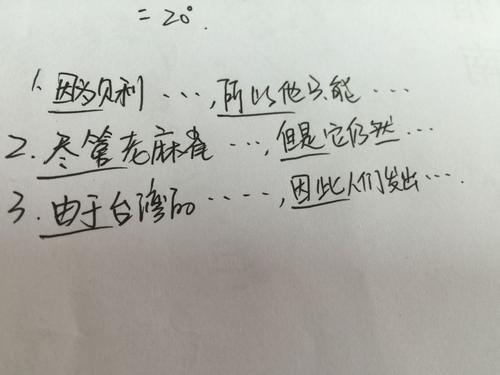 = 20°.
1. 因为贝利 …, 所以他只能 …
2. 尽管老麻雀 …, 但是它仍然 …
3. 由于台湾的 ……, 因此人们发出 …